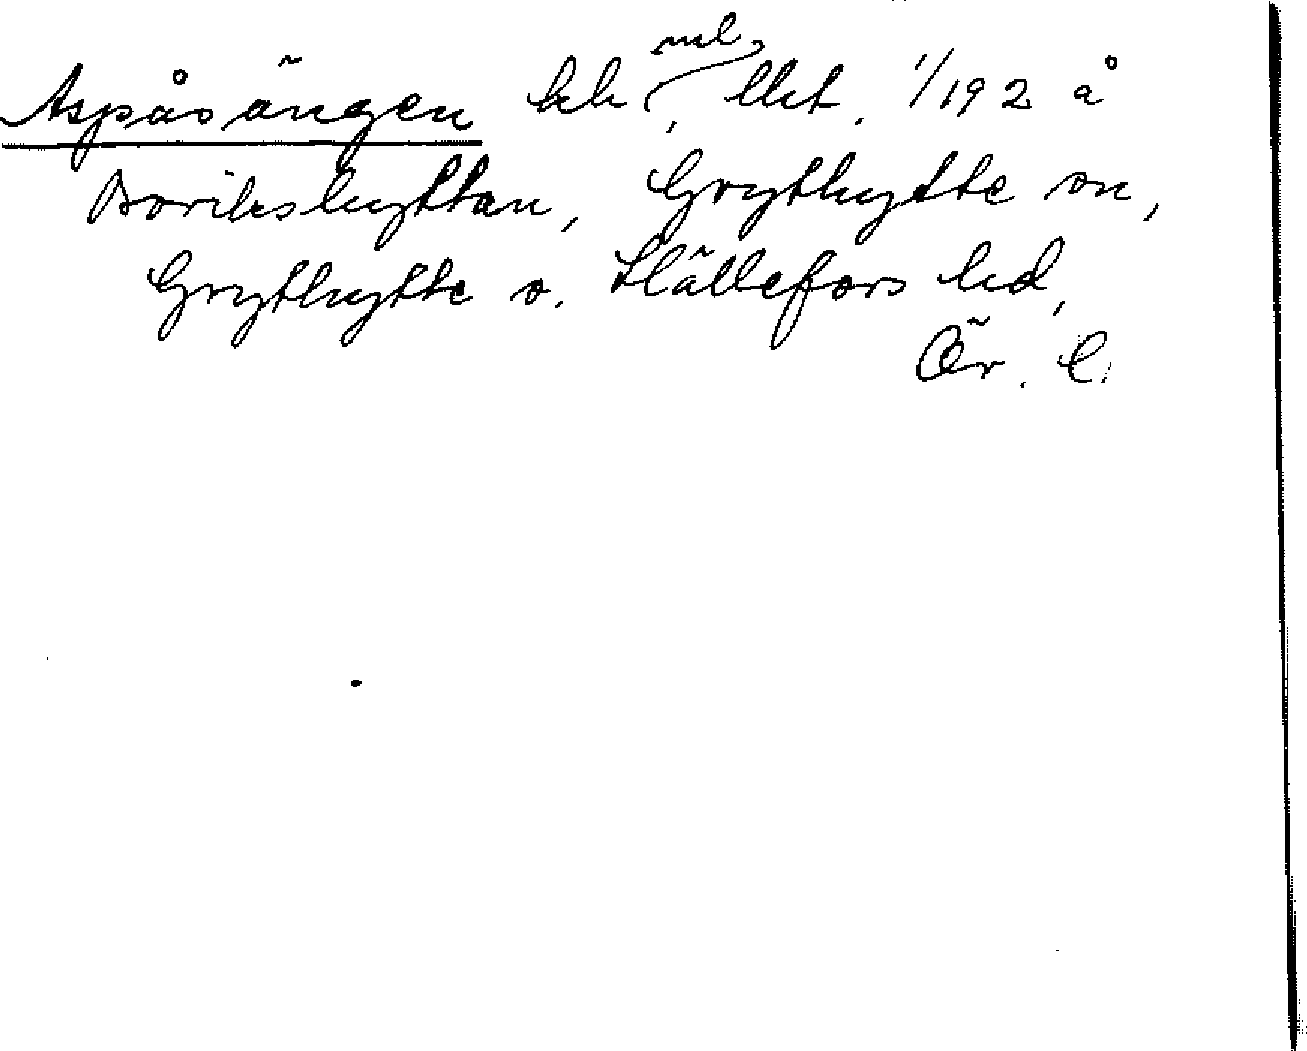 Aspåsängen lch, lht. 1/192 å
Borikshyttan, Grythytte sn,
Grythytte o. Hällefors hd,
Ör. l.